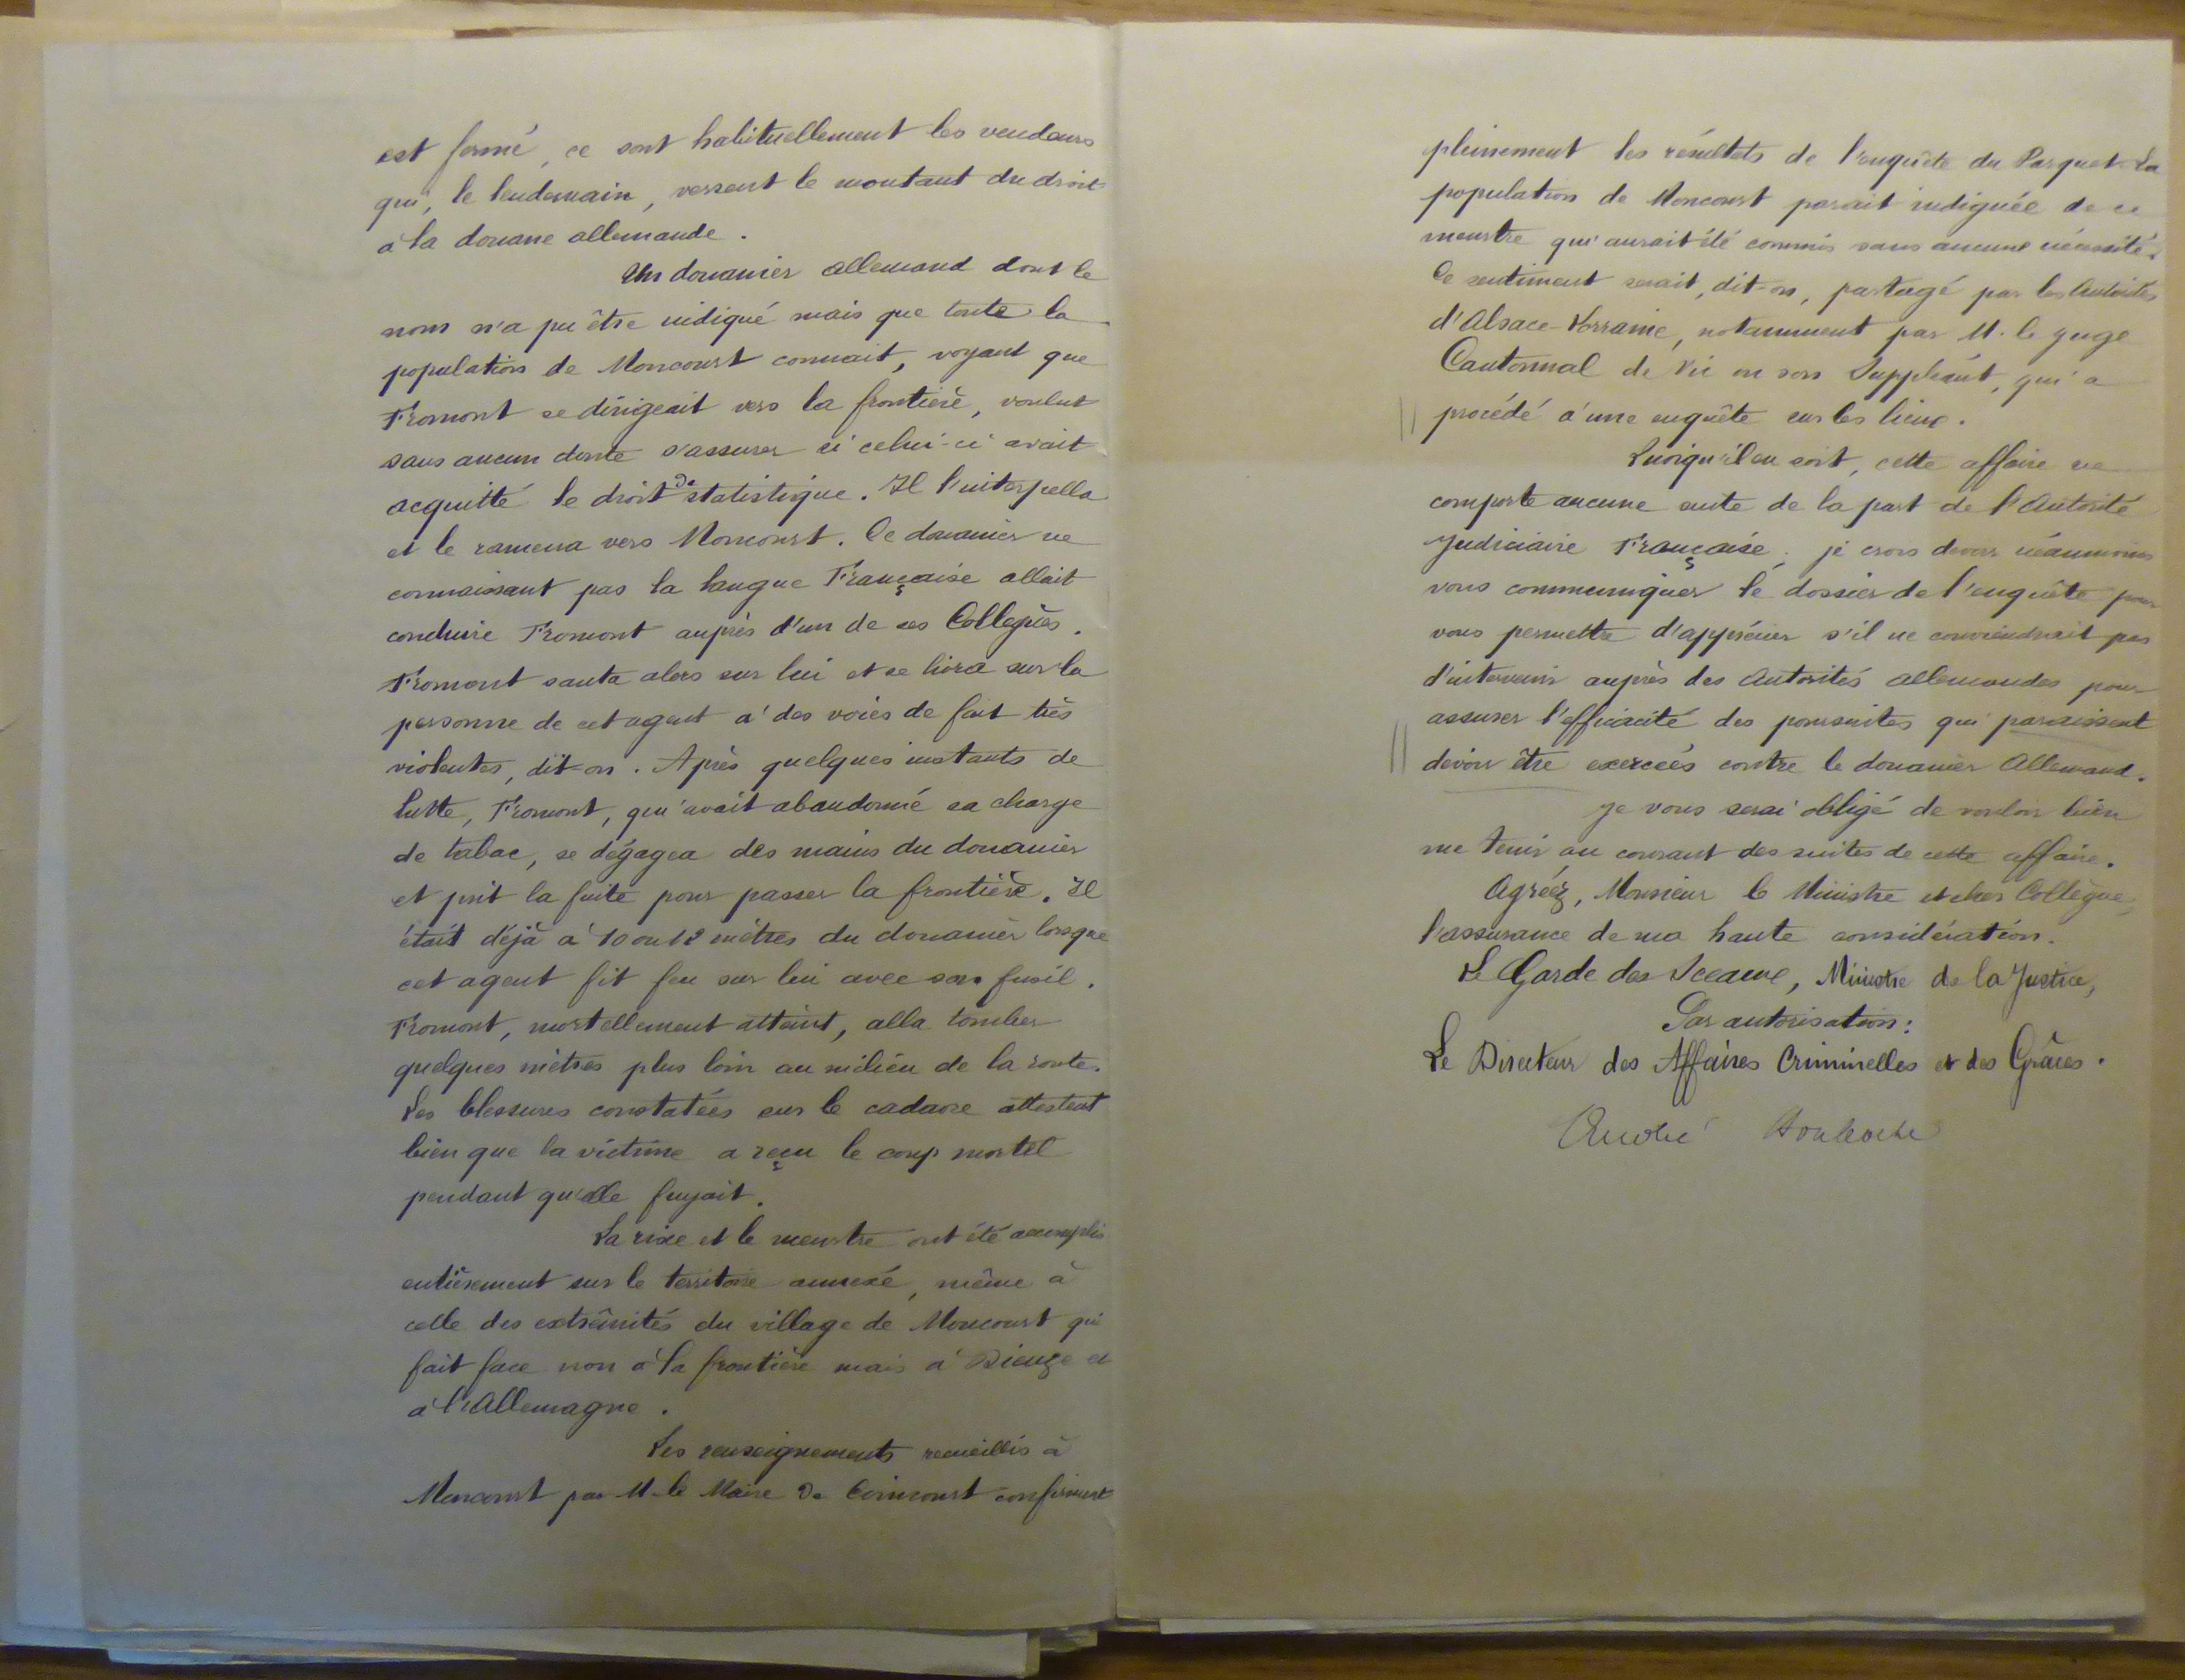 est fermé, ce sont habituellement les vendeurs
qui, le lendemain, versent le montant du droit
à la douane allemande.
Un douanier allemand dont le
nom n'a pu être indiqué mais que toute la
population de Moncourt connait, voyant que
Fromont se dirigeait vers la frontière, voulut
sans aucun doute s'assurer si celui-ci avait
acquitté le droit de statistique. Il l'interpella
et le ramena vers Moncourt. Ce douanier ne
connaissant pas la langue Française allait
conduire Fromont auprès d'un de ses Collègues.
Fromont sauta alors sur lui et se livra sur la
personne de cet agent à des voies de fait très
violentes, dit-on. Après quelques instants de
lutte, Fromont, qui avait abandonné sa charge
de tabac, se dégagea des mains du douanier
et prit la fuite pour passer la frontière. Il
était déjà à 10 ou 12 mètres du douanier lorsque
cet agent fit feu sur lui avec son fusil.
Fromont, mortellement atteint, alla tomber
quelques mètres plus loin au milieu de la route.
Les blessures constatées sur le cadavre attestent
bien que la victime a reçu le coup mortel
pendant qu'elle fuyait.
La rixe et le meurtre ont été accomplis
entièrement sur le territoire annexé, même à
celle des extrêmités du village de Moncourt qui
fait face non à la frontière mais à Dieuze et
à l'Allemagne.
Les renseignements recueillis à
Moncourt par M. le Maire de Coincourt confirment
pleinement les résultats de l'enquête du Parquet. La
population de Moncourt parait indignée de ce
meurtre qui aurait été commis sans aucune nécessité.
Ce sentiment serait, dit-on, partagé par les Autorités
d'Alsace-Lorraine, notamment par M. le Juge
Cantonnal de Vic ou son Suppléant, qui a
procédé à une enquête sur les lieux.
Quoiqu'il en soit, cette affaire ne
comporte aucune suite de la part de l'Autorité
Judiciaire Française; je crois devoir néanmoins
vous communiquer le dossier de l'enquête pour
vous permettre d'apprécier s'il ne conviendrait pas
d'intervenir auprès des Autorités allemandes pour
assurer l'efficacité des poursuites qui paraissent
devoir être exercées contre le douanier Allemand.
Je vous serai obligé de vouloir bien
me tenir au courant des suites de cette affaire.
Agréez, Monsieur le Ministre et cher Collègue,
l'assurance de ma haute considération.
Le Garde des Sceaux, Ministre de la Justice,
Par autorisation:
Le Directeur des Affaires Criminelles et des Grâces.
André